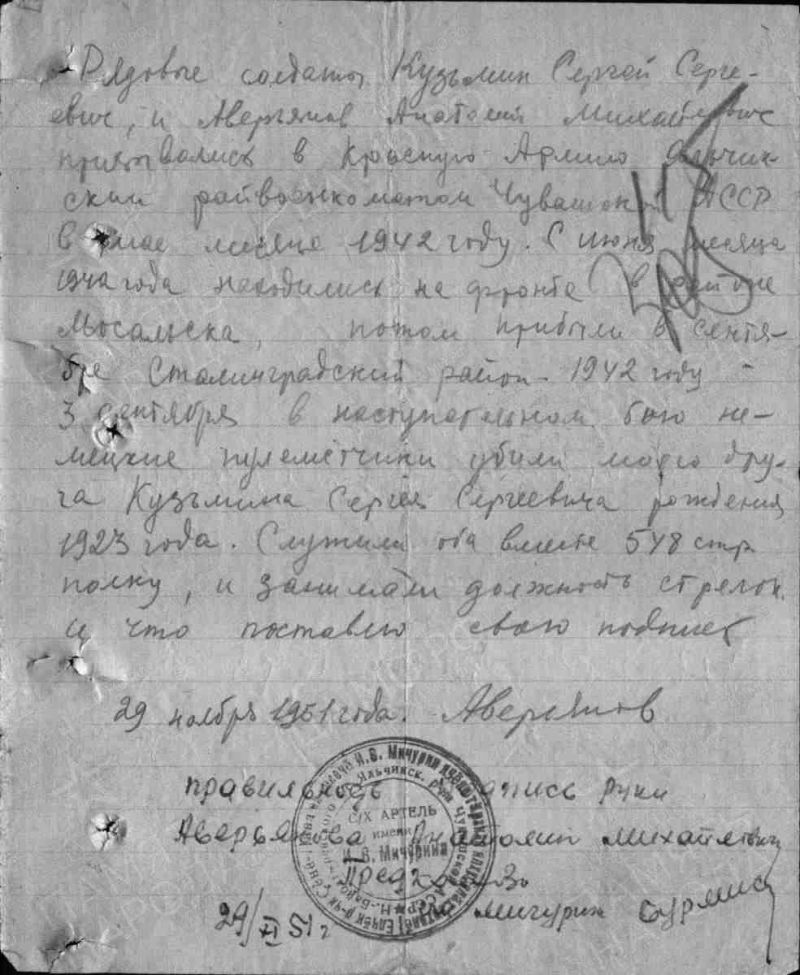 Рядовые солдаты Кузьмин Сергей Серге-
евич, и Аверьянов Анатолий Михайлович
призывались в Красную Армию Яльчик-
ским райвоенкоматом Чувашской АССР
в мае месяце 1942 году. С июня месяца
1942 года находились на фронте в районе
Мосальска, потом прибыли в сентя-
бре Сталинградский район. 1942 году
3 сентября в наступательном бою не-
мецкие пулеметчики убили моего дру-
га Кузьмина Сергея Сергеевича рождения
1923 года. Служили оба вместе 548 стр.
полку, и занимали должность стрелок.
и что поставлю свою подпись
29 ноября 1951 года. Аверьянов
правильность подпись руки
Аверьянова Анатолия Михайловича
Пред. к-за
Мичурин
29/XI 51 г
С/Х АРТЕЛЬ
имени
И. В. Мичурина